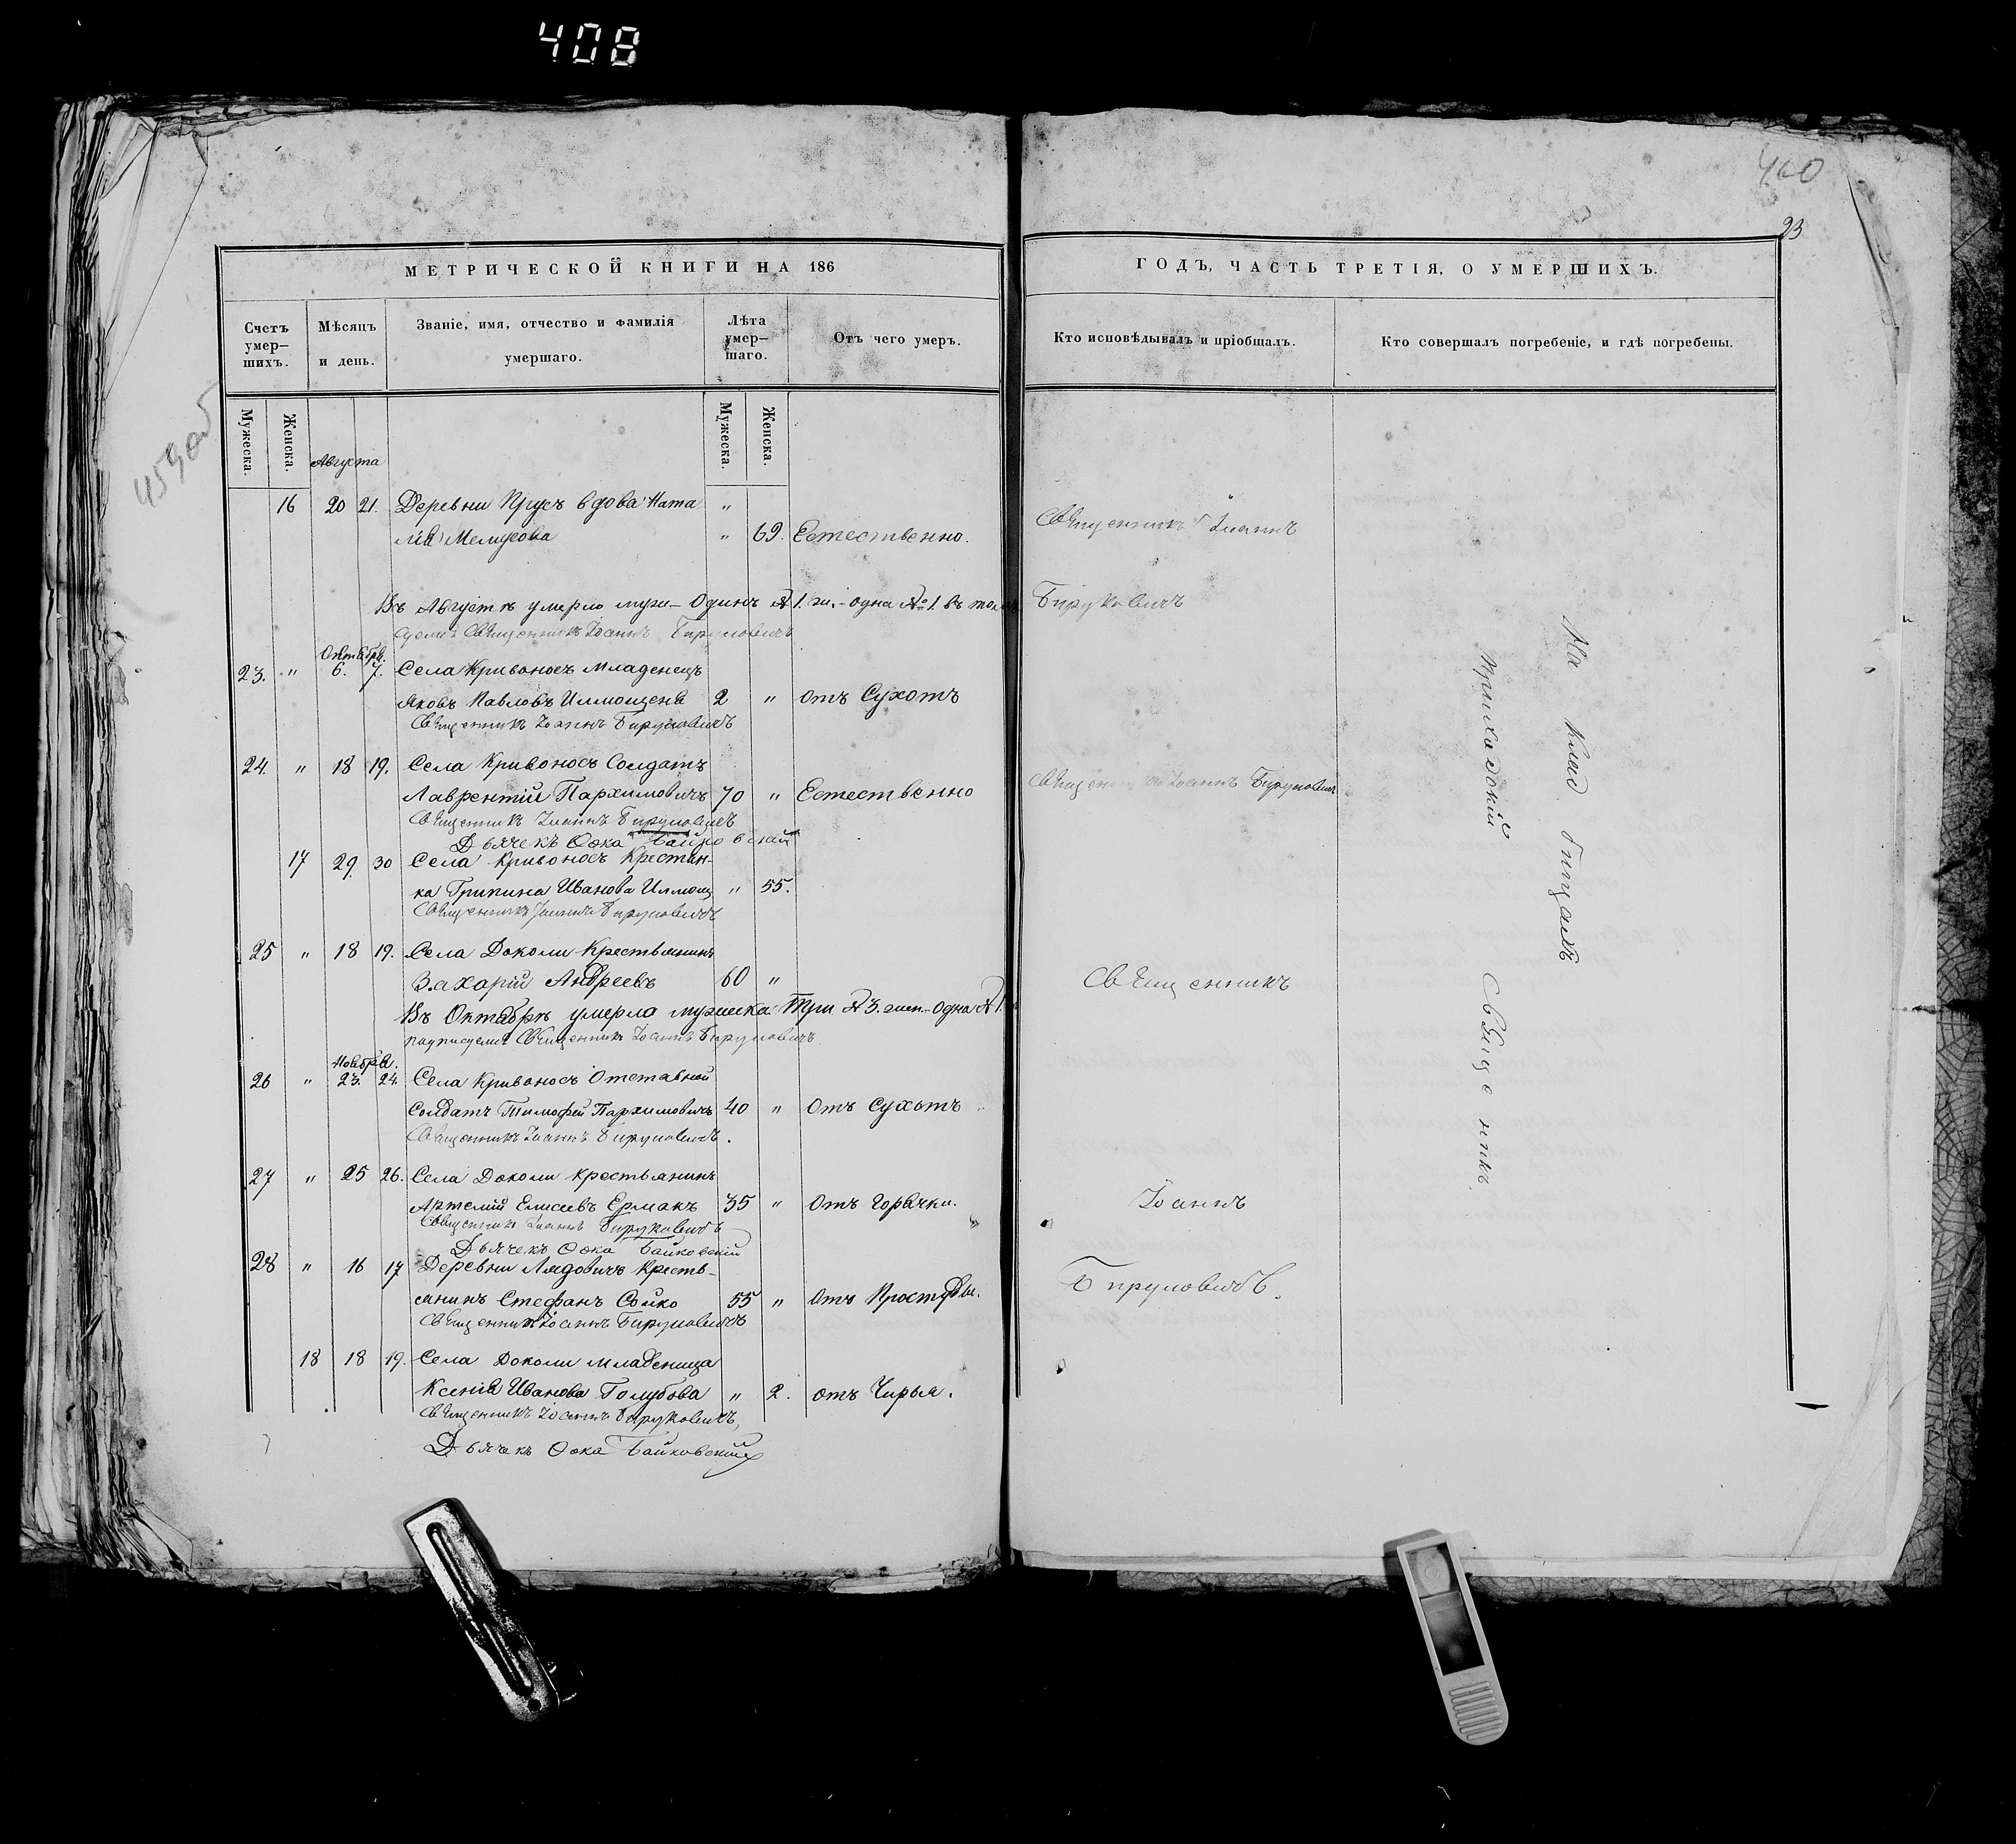 408
460
23
МЕТРИЧЕСКОЙ КНИГИ НА 186
Счетъ умер—шихъ.
Мѣсяцъ и день.
Званіе, имя, отчество и фамилія умершаго.
Лѣта умер—шаго.
Отъ чего умеръ.
Мужеска. Женска. Мужеска. Женска.
Августа
16 20 21. Деревни Прусъ вдова Ната „
лія „ 69. Естественно.
Въ Августѣ умерло муж— Одинъ № 1. жи.— одна № 1. въ томъ
Священникъ Іоаннъ Бируковичъ
Октября.
23. „ 6. 7. Села Кривоносъ Младенецъ
Яковъ Павловъ 2 „ отъ Сухотъ
Священникъ Іоаннъ Бируковичъ
24. „ 18 19. Села Кривоносъ Солдатъ
Лаврентій Пархимовичъ 70 „ Естественно
Священникъ Іоаннъ Бируковичъ
Дьячекъ Ѳока
17 29. 30 Села Кривоносъ Крестян-
ка Грипина Иванова „ 55.
Священникъ Іоаннъ Бируковичъ
25 „ 18 19. Села Доколи Крестьянинъ
Захарій Андреевъ 60 „
Въ Октябрѣ умерло мужеска Три № 3. жен.— одна № 1.
Священникъ Іоаннъ Бируковичъ
Ноября.
26 „ 23. 24. Села Кривоносъ Отставной
Солдатъ Тимофей Пархимовичъ 40 „ Отъ Сухотъ
Священникъ Іоаннъ Бируковичъ.
27 „ 25 26. Села Доколи Крестьянинъ
Артемій Елисеевъ Ермакъ 35 „ Отъ Горячки.
Священникъ Іоаннъ Бируковичъ
Дьячекъ Ѳока Байковскій
28 „ 16 17 Деревни Лядовичъ Кресть-
янинъ Стефанъ Сойко 55 „ Отъ Простуды.
Священникъ Іоаннъ Бируковичъ
18 18 19. Села Доколи младеница
Ксенія Иванова Голубова „ 2. отъ Чирья.
Священникъ Іоаннъ Бируковичъ,
Дьячекъ Ѳока Байковскій
ГОДЪ, ЧАСТЬ ТРЕТІЯ, О УМЕРШИХЪ.
Кто исповѣдывалъ и пріобщалъ.
Кто совершалъ погребеніе, и гдѣ погребены.
Священникъ Іоаннъ
Бируковичъ
Священникъ Іоаннъ Бируковичъ
Священникъ
Іоаннъ
Бируковичъ.
На кладбищахъ
Приходскій Священникъ